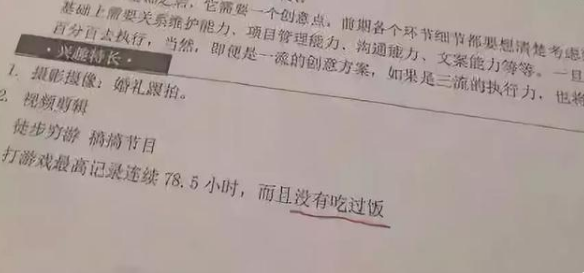 都之后，它需要一个创意点，前期各个环节细节都要想清楚考虑
基础上需要关系维护能力、项目管理能力、沟通能力、文案能力等等。一旦
百分百去执行，当然，即便是一流的创意方案，如果是三流的执行力，也将
·兴趣特长·
1. 摄影摄像：婚礼跟拍。
2. 视频剪辑
徒步穷游 稿搞节目
打游戏最高记录连续 78.5 小时，而且没有吃过饭